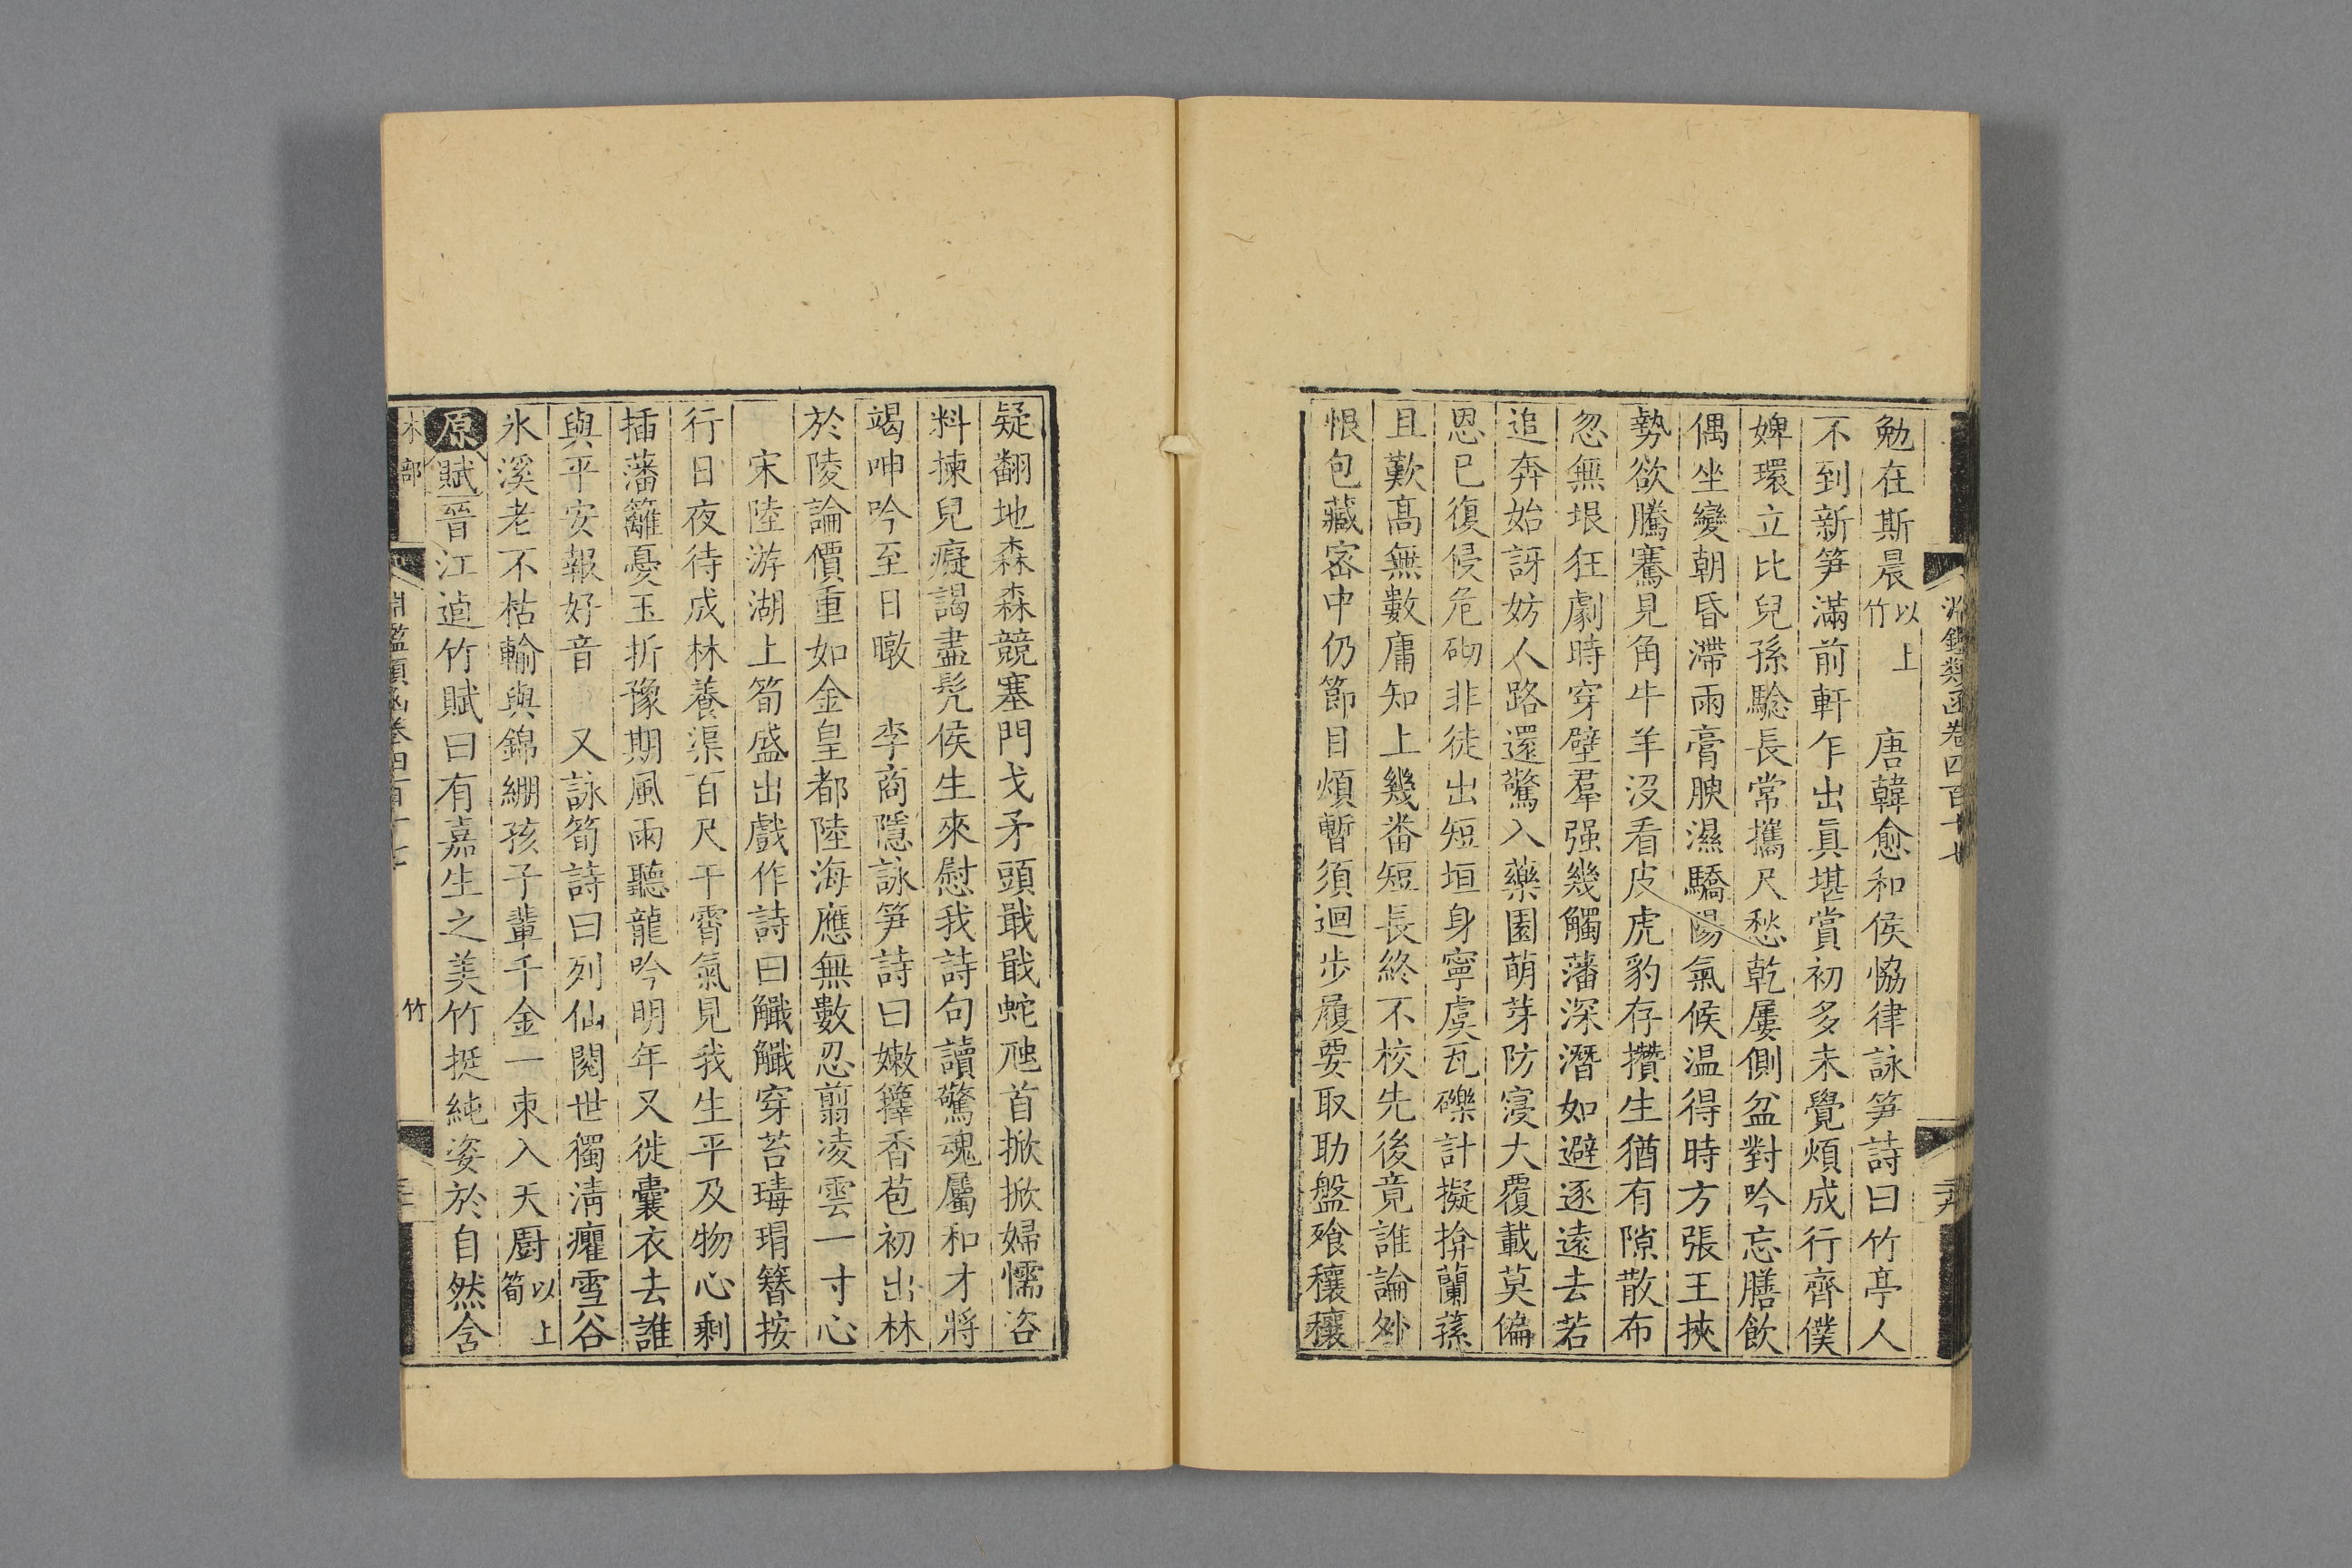 淵鑑類函卷四百十七
勉在斯晨以上竹　唐韓愈和侯恊律詠笋詩曰竹亭人
不到新笋滿前軒乍出眞堪賞初多未覺煩成行齊僕
婢環立比兒孫驗長常攜尺愁乾屢側盆對吟忘膳飲
偶坐變朝昏滯雨膏腴濕驕陽氣候温得時方張王挾
勢欲騰騫見角牛羊没看皮虎豹存攢生猶有隙散布
忽無垠狂劇時穿壁羣强幾觸藩深潛如避逐遠去若
追奔始訝妨人路還驚入藥園萌芽防寖大覆載莫偏
恩已復侵危砌非徒出短垣身寧虞瓦礫計擬揜蘭蓀
且歎高無數庸知上幾番短長終不校先後竟誰論外
恨包藏宻中仍節目煩暫須迴步履要取助盤飱穰穰
疑翻地森森競塞門戈矛頭戢戢蛇虺首掀掀婦懦咨
料揀兒癡謁盡髠侯生來慰我詩句讀驚魂屬和才將
竭呻吟至日暾　李商隱詠笋詩曰嫩籜香苞初出林
於陵論價重如金皇都陸海應無數忍翦凌雲一寸心
宋陸游湖上筍盛出戲作詩曰觿觿穿苔瑇瑁簪按
行日夜待成林養渠百尺干霄氣見我生平及物心剩
插藩籬憂玉折豫期風雨聽龍吟明年又徙囊衣去誰
與平安報好音　又詠筍詩曰列仙閱世獨淸癯雪谷
氷溪老不枯輸與錦綳孩子輩千金一束入天廚以上筍
原賦晉江逌竹賦曰有嘉生之美竹挺純姿於自然含
木部　淵鑑類函卷四百十七　竹